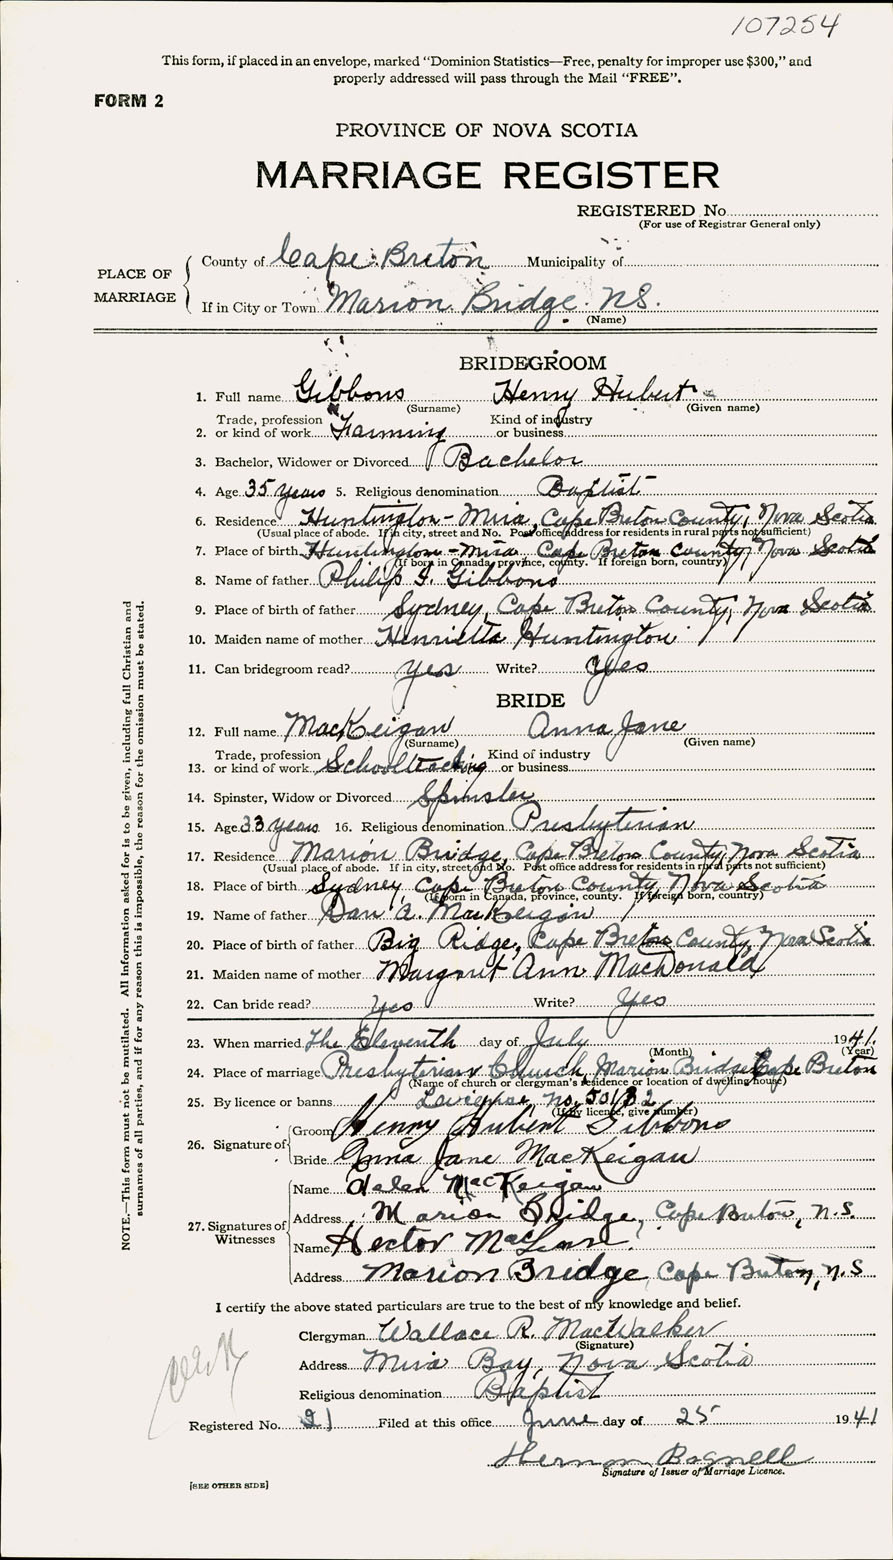 107254
This form, if placed in an envelope, marked "Dominion Statistics—Free, penalty for improper use $300," and
properly addressed will pass through the Mail "FREE".
FORM 2
PROVINCE OF NOVA SCOTIA
MARRIAGE REGISTER
REGISTERED No.
(For use of Registrar General only)
PLACE OF MARRIAGE
County of Cape Breton Municipality of
If in City or Town Marion Bridge. N.S.
(Name)
BRIDEGROOM
1. Full name Gibbons Henry Hubert
(Surname) (Given name)
Trade, profession Kind of industry
2. or kind of work Farming or business
3. Bachelor, Widower or Divorced Bachelor
4. Age 35 years 5. Religious denomination Baptist
6. Residence Huntington-Mira, Cape Breton County, Nova Scotia
(Usual place of abode. If in city, street and No. Post office address for residents in rural parts not sufficient)
7. Place of birth Huntington-Mira Cape Breton County, Nova Scotia
(If born in Canada, province, county. If foreign born, country)
8. Name of father Philip I. Gibbons
9. Place of birth of father Sydney, Cape Breton County, Nova Scotia
10. Maiden name of mother Henrietta Huntington
11. Can bridegroom read? yes Write? Yes
BRIDE
12. Full name MacKeigan Anna Jane
(Surname) (Given name)
Trade, profession Kind of industry
13. or kind of work Schoolteaching or business
14. Spinster, Widow or Divorced Spinster
15. Age 33 years 16. Religious denomination Presbyterian
17. Residence Marion Bridge, Cape Breton County, Nova Scotia
(Usual place of abode. If in city, street and No. Post office address for residents in rural parts not sufficient)
18. Place of birth Sydney, Cape Breton County, Nova Scotia
(If born in Canada, province, county. If foreign born, country)
19. Name of father Dan A. MacKeigan
20. Place of birth of father Big Ridge, Cape Breton County, Nova Scotia
21. Maiden name of mother Margaret Ann MacDonald
22. Can bride read? yes Write? Yes
23. When married The Eleventh day of July 1941.
(Month) (Year)
24. Place of marriage Presbyterian Church, Marion Bridge Cape Breton
(Name of church or clergyman's residence or location of dwelling house)
25. By licence or banns Licence, No. 50132
(If by licence, give number)
26. Signature of Groom Henry Hubert Gibbons
Bride Anna Jane MacKeigan
27. Signatures of Witnesses
Name Helen MacKeigan
Address Marion Bridge, Cape Breton, N.S.
Name Hector MacLean.
Address Marion Bridge, Cape Breton, N.S
I certify the above stated particulars are true to the best of my knowledge and belief.
Clergyman Wallace R. MacWalker
(Signature)
Address Mira Bay, Nova Scotia
Religious denomination Baptist
Registered No. 21 Filed at this office June day of 25 1941
Herman Bagnell
Signature of Issuer of Marriage Licence.
[SEE OTHER SIDE]
NOTE.—This form must not be mutilated. All information asked for is to be given, including full Christian and
surnames of all parties, and if for any reason this is impossible, the reason for the omission must be stated.